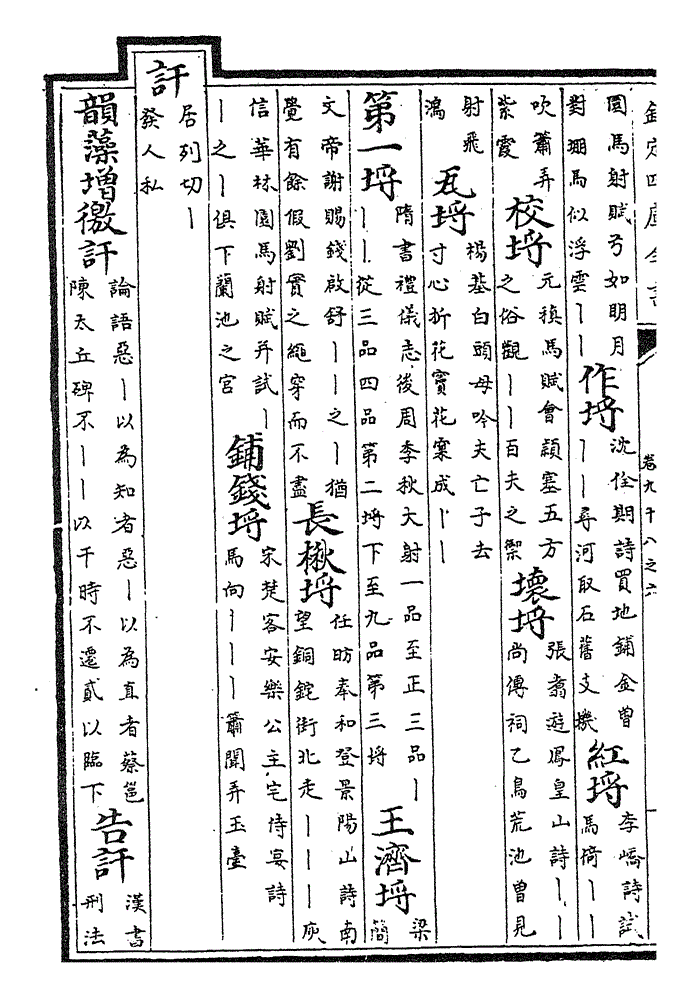 欽定四庫全書
卷九十八之六
園馬射賦弓如明月
對堋馬似浮雲丨丨
作埒
沈佺期詩買地鋪金曽
丨丨尋河取石舊支機
紅埒
李嶠詩試
馬倚丨丨
吹簫弄
紫霞
校埒
元稹馬賦會顓塞五方
之俗觀丨丨百夫之禦
壞埒
張翥遊鳳皇山詩丨丨
尚傳祠乙鳥荒池曽見
射飛
鴻
瓦埒
楊基白頭母吟夫亡子去
寸心折花寶花窠成丨丨
第一埒
隋書禮儀志後周季秋大射一品至正三品丨
丨丨從三品四品第二埒下至九品第三埒
王濟埒
梁
簡
文帝謝賜錢啟舒丨丨之丨猶
覺有餘假劉寔之繩穿而不盡
長楸埒
任昉奉和登景陽山詩南
望銅鉈街北走丨丨丨庾
信華林園馬射賦并試丨
丨之丨俱下蘭池之宮
鋪錢埒
宋楚客安樂公主宅侍宴詩
馬向丨丨丨簫聞弄玉臺
訐
居列切丨
發人私
韻藻增徼訐
論語惡丨以為知者惡丨以為直者蔡邕
陳太丘碑不丨丨以干時不遷貳以臨下
告訐
漢書
刑法